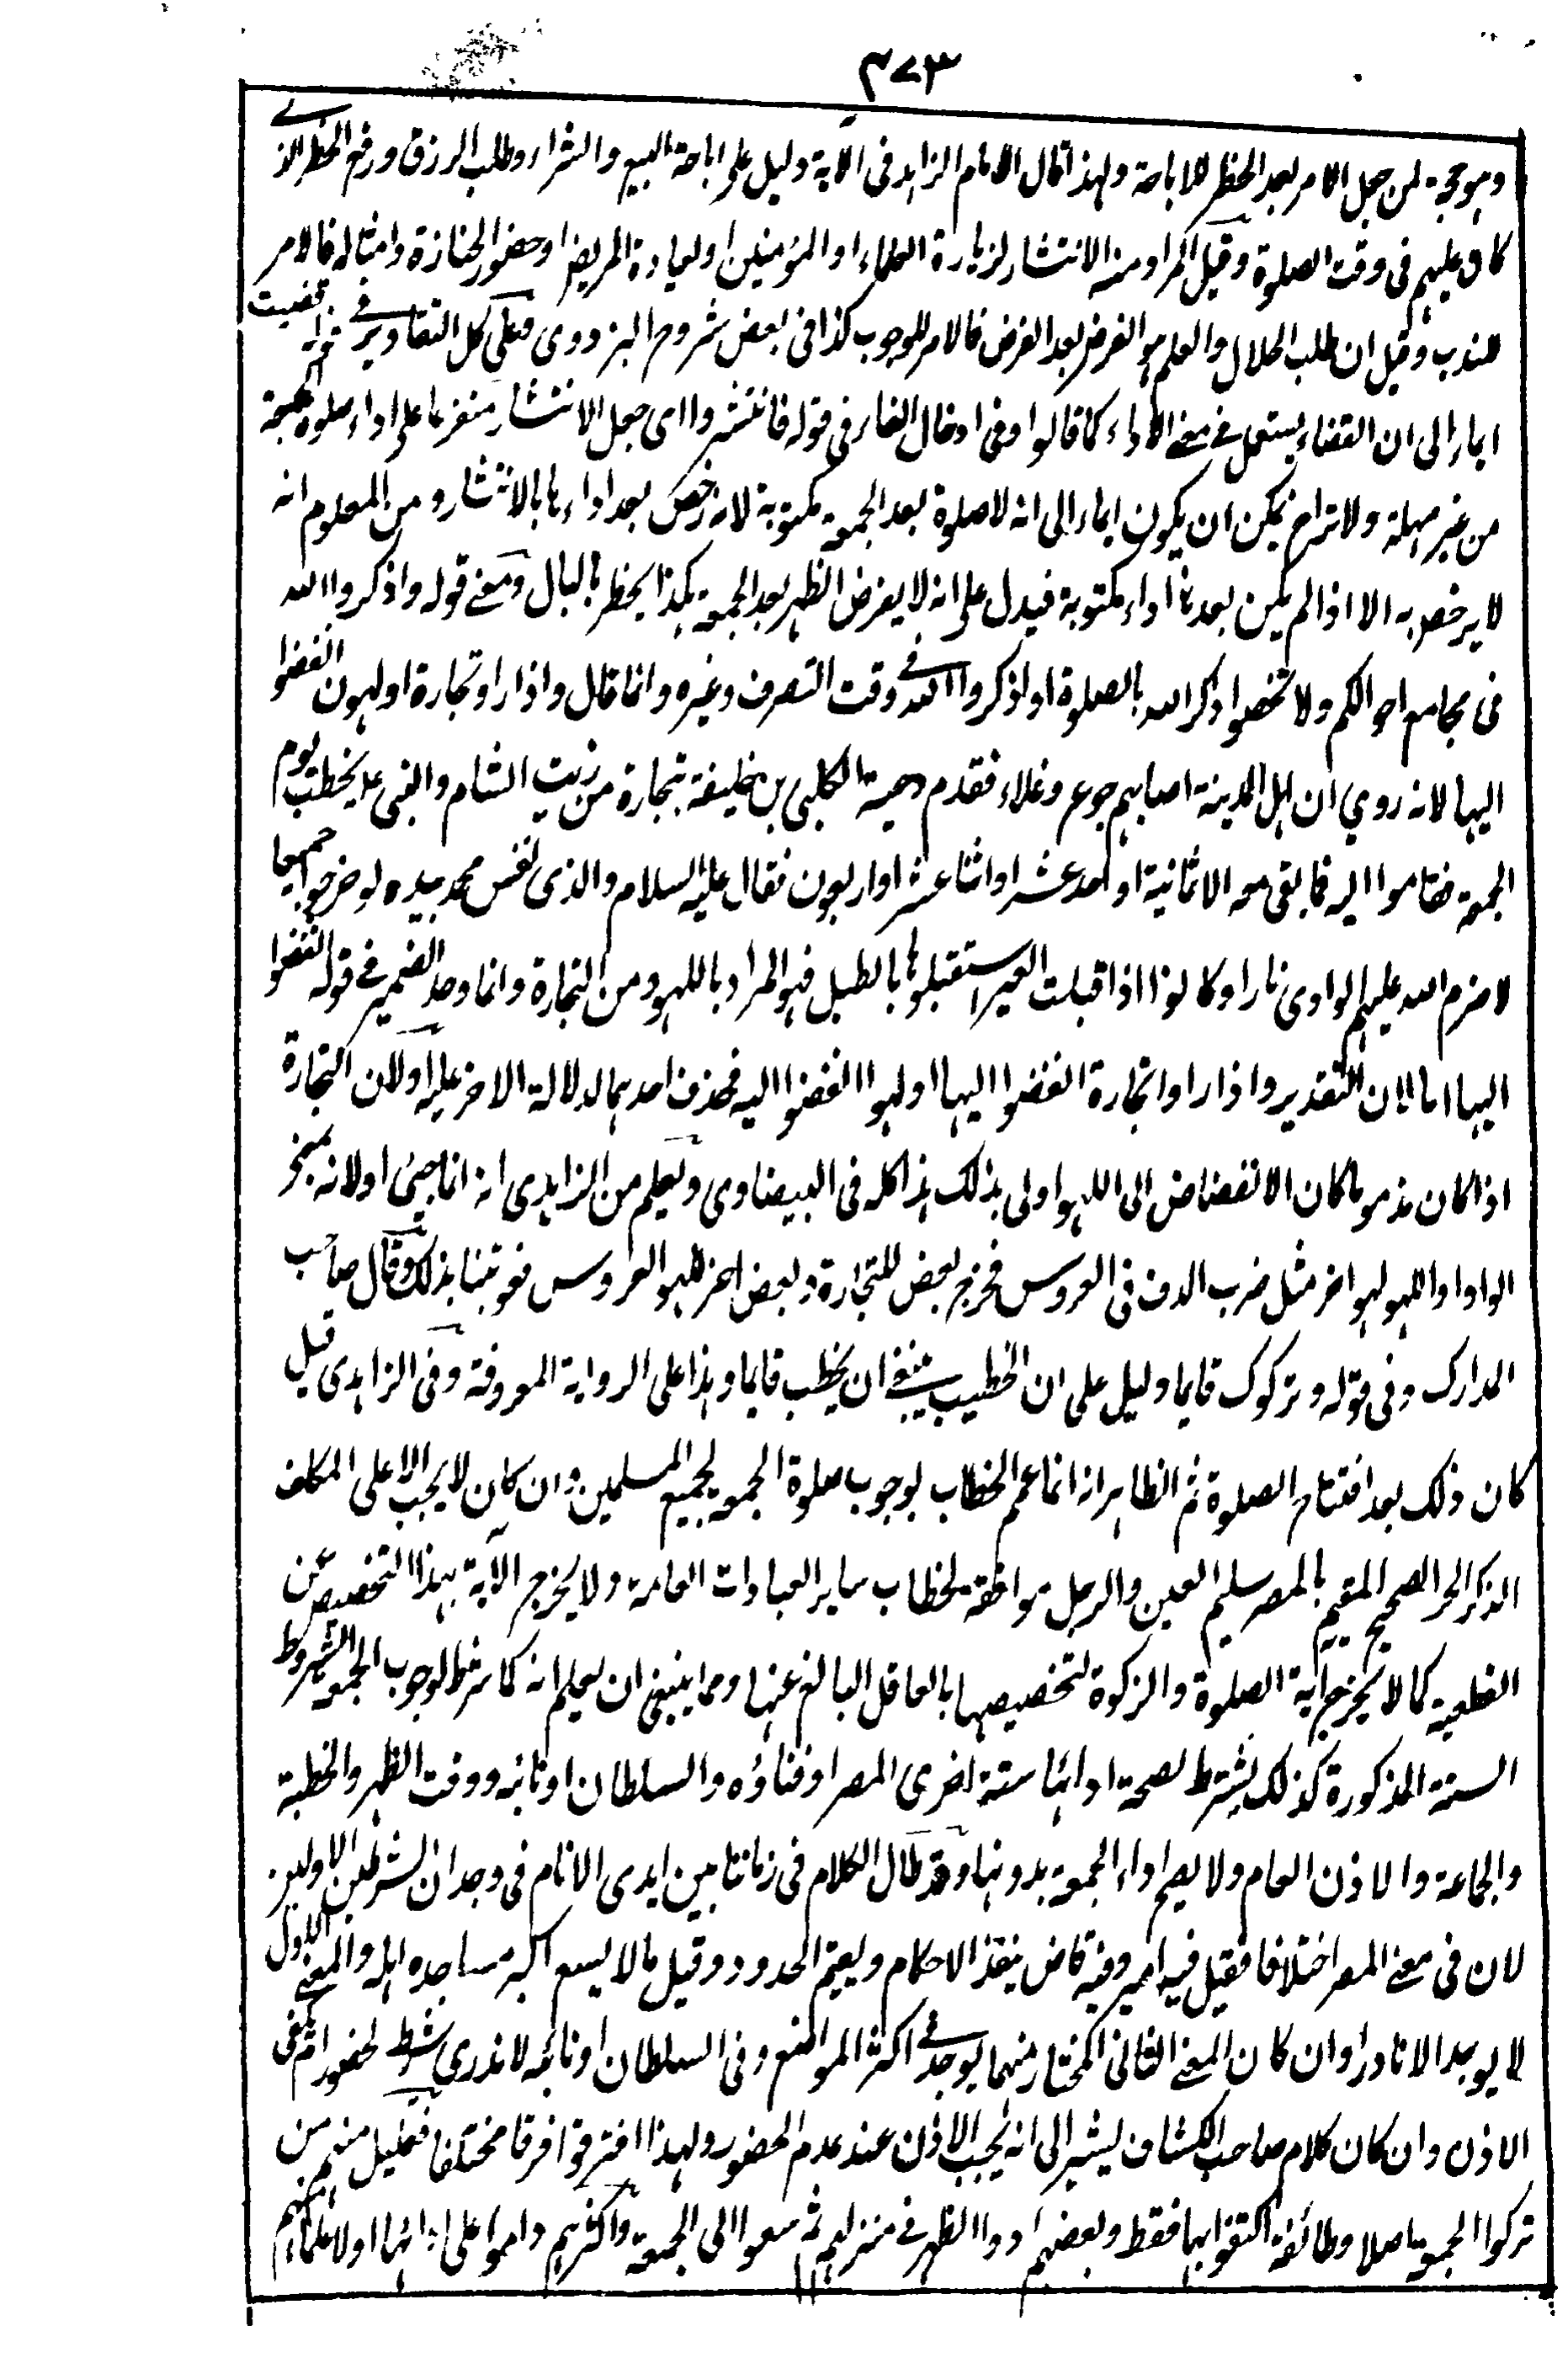 ٣٧٣
وهو حجة لمن جعل الامر بعد الحظر للاباحة ولهذا قال الامام الزاهد فى الاية دليل على اباحة البيع والشراء وطلب الرزق ورفع الحظر الذے
كان عليهم فى وقت الصلوة وقيل المراد منه الانتشار لزيارة العلماء او المؤمنين او لعيادة المريض او حضور الجنازة وامثاله فالامر
للندب وقيل ان طلب الحلال والعلم هو الفرض بعد الفرض فالامر للوجوب كذا فى بعض شروح البزدوى فعلى كل التقادير فے قوله قضيت
ايماء الى ان القضاء يستعمل فے معنے الاداء كما قالوا وفى ادخال الفاء فى قوله فانتشروا اى جعل الانتشار متفرعا على اداء صلوة الجمعة
من غير مهلة ولا تراخ يمكن ان يكون ايماء الى انه لا صلوة بعد الجمعة مكتوبة لانه رخص بعد اداءها بالانتشار ومن المعلوم انه
لا يرخص به الا اذا لم يكن بعدها اداء مكتوبة فيدل على انه لا يفرض الظهر بعد الجمعة هكذا يخطر بالبال ومعنے قوله واذكروا الله
فى مجامع احوالكم ولا تخصوا ذكر الله بالصلوة او اذكروا الله فے وقت التصرف وغيره وانما قال واذا راوا تجارة او لهون انفضوا
اليها لانه روي ان اهل المدينة اصابهم جوع وغلاء فقدم دحية الكلبى بن خليفة بتجارة من زيت الشام والنبى عم يخطب يوم
الجمعة فقاموا اليه فما بقى معه الا ثمانية او احد عشر او اثنا عشر او اربعون فقال عليه السلام والذى نفس محمد بيده لو خرجوا جميعا
لاضرم الله عليهم الوادى نارا وكانوا اذا اقبلت العير استقبلوها بالطبل فهو المراد باللهو من التجارة وانما وحد الضمير فے قوله انفضوا
اليها اما لان التقدير واذا راوا تجارة انفضوا اليها او لهوا انفضوا اليه فحذف احدهما لدلالة الاخر عليه او لان التجارة
اذا كان مذموما كان الانفضاض الى اللهو اولى بذلك هذا كله فى البيضاوى ويعلم من الزاهدى انه انما جئ او لانه بمنے
الواو او اللهو لهو اخر مثل ضرب الدف فى العروس فخرج بعض للتجارة وبعض اخر للهو العروس فعوتبنا بذلك وقال صاحب
المدارك وفى قوله وتركوك قايما دليل على ان الخطيب ينبغے ان يخطب قايما وهذا على الرواية المعروفة وفى الزاهدى قيل
كان ذلك بعد افتتاح الصلوة ثم الظاهر انه انما عمم الخطاب لوجوب صلوة الجمعة لجميع المسلمين وان كان لا يجب الا على المكلف
الذكر الحر الصحيح المقيم بالمصر سليم العين والرجل موافقة لخطاب ساير العبادات العامة ولا يخرج الآية بهذا التخصيص عن
القطعية كما لا يخرج اية الصلوة والزكوة لتخصيصها بالعاقل البالغ عنها ومما ينبغى ان يعلم انه كما شرط لوجوب الجمعة الشروط
الستة المذكورة كذلك يشترط لصحة ادائها ستة اخرى المصر او فناؤه والسلطان او نائبه ووقت الظهر والخطبة
والجماعة والاذن العام ولا يصح اداء الجمعة بدونها وقد طال الكلام فى زماننا بين ايدى الانام فى وجدان الشرطين الاولين
لان فى معنے المصر اختلافا فقيل فيه امير وفيه قاض ينفذ الاحكام ويقيم الحدود وقيل ما لا يسع اكبر مساجده اهله والمعنے الاول
لا يوجد الا نادرا وان كان المعنے الثانى المختار منهما يوجد فے اكثر المواضع وفى السلطان او نائبه لا ندرى شرط حضوره ام يكفى
الاذن وان كان كلام صاحب الكشاف يشير الى انه يجب الاذن عند عدم الحضور ولهذا افترقوا فرقا مختلفا فقليل منهم من
تركوا الجمعة اصلا وطائفة اكتفوا بها فقط وبعضهم ادوا الظهر فے منزلهم ثم سعوا الى الجمعة واكثرهم داموا على ادائها اولا علماؤهم